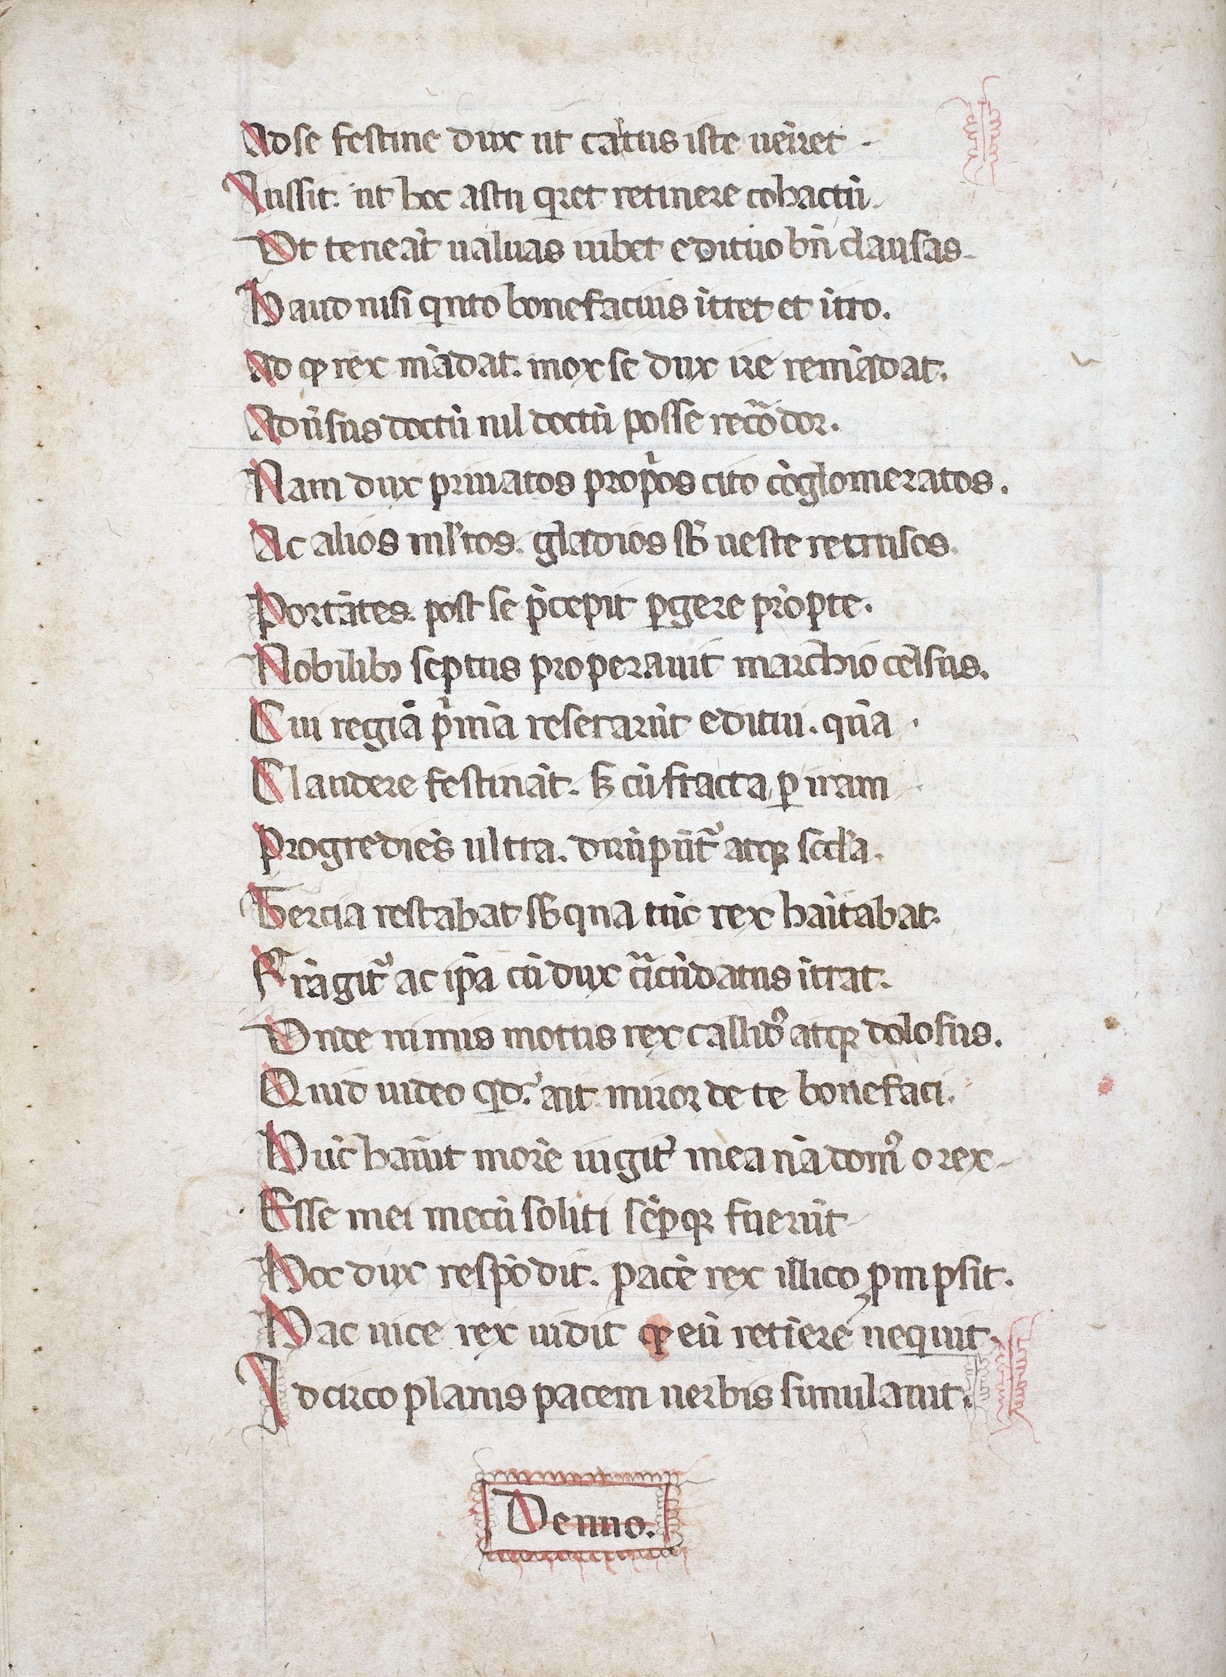 Ad se festine dux ut cartus iste ueiret.
Iussit. ut hoc astu qret retinere cohactū.
Ut teneāt ualuas iubet edituo bn̄ clausas.
Haud nisi qnto bonefacius ītret et ītro.
Ad qp rex mādat. mox se dux ire remādat.
Aduīsus doctū nil doctū posse recōdor.
Nam dux priuatos propos cito cōglomeratos.
Ac alios ml'tos. gladios sb ueste retrusos.
Portātes. post se p̄cepit pgere prope.
Nobilibꝫ septus properauit marchio celsus.
Cui regiā p̄mā reserarūt editui. qnā.
Claudere festināt. sꝫ cū fracta p iram
Progrediēs ultra. dirūpūt' atqꝫ scd'a.
Tercia restabat sb qua tūc rex hāitabat.
Frāgit' ac ipā cū dux c̄cūdatus ītrat.
Unde nimis motus rex callid' atqꝫ dolosus.
Quid uideo qd'. ait. miror de te bonefaci.
Hūc hāiūt morē uigit' mea nā dom' o rex.
Esse mei mecū soliti sēpqꝫ fuerūt.
Hoc dux respōdit. pacē rex illico pmpsit.
Hac uice rex uidit qp eū retīere nequit.
Idcirco planis pacem uerbis simulauit.
Denuo.